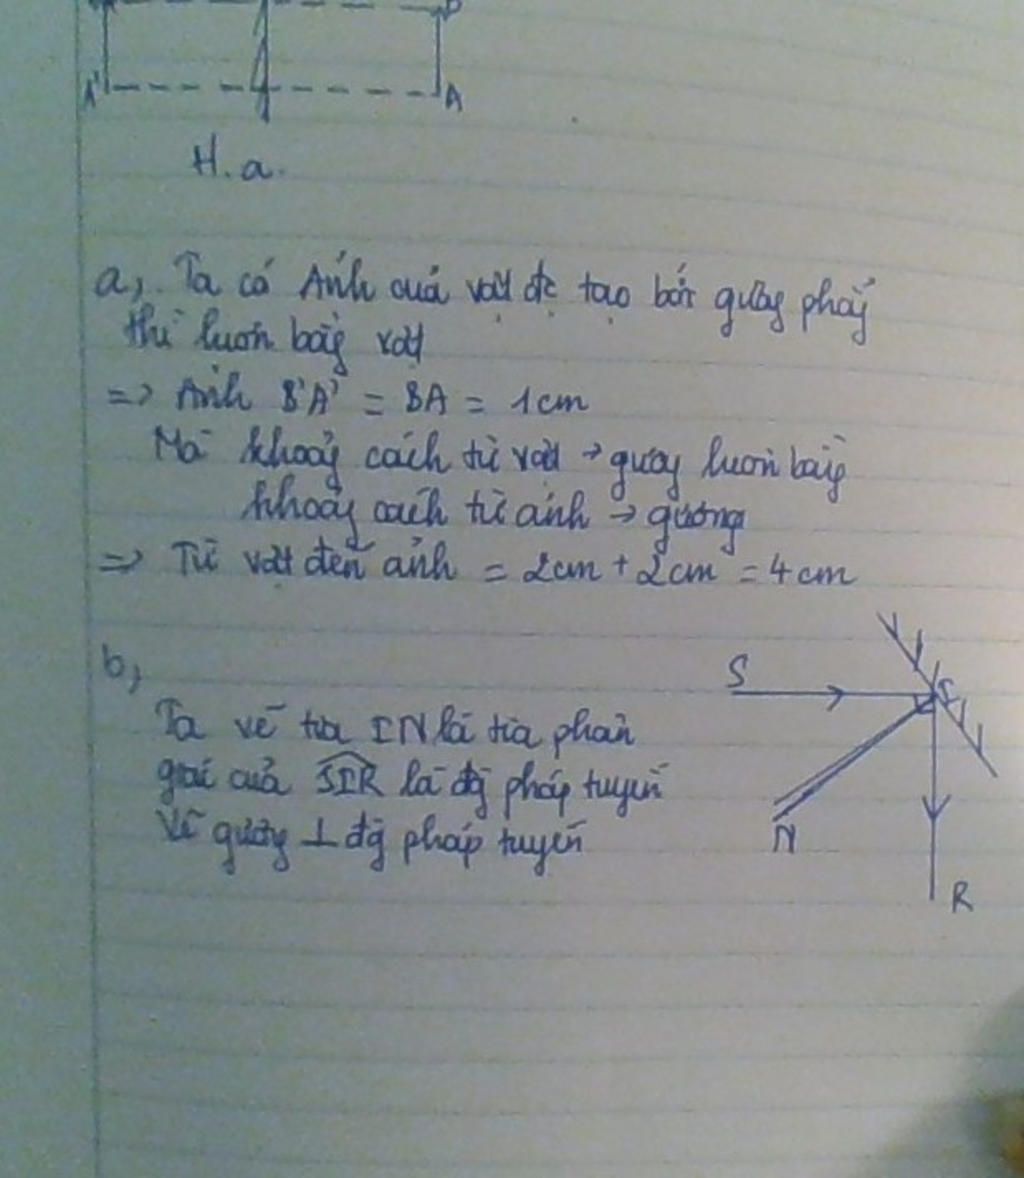 B
A' A
H.a.
a, Ta có Ảnh của vật đc tạo bởi gương phẳng
thì luôn bằng vật
=> Ảnh B'A' = BA = 1cm
Mà khoảng cách từ vật → gương luôn bằng
khoảng cách từ ảnh → gương
=> Từ vật đến ảnh = 2cm + 2cm = 4cm
b,
S I
Ta vẽ tia IN là tia phân
giác của SIR là đg pháp tuyến
Vẽ gương ⊥ đg pháp tuyến
N
R